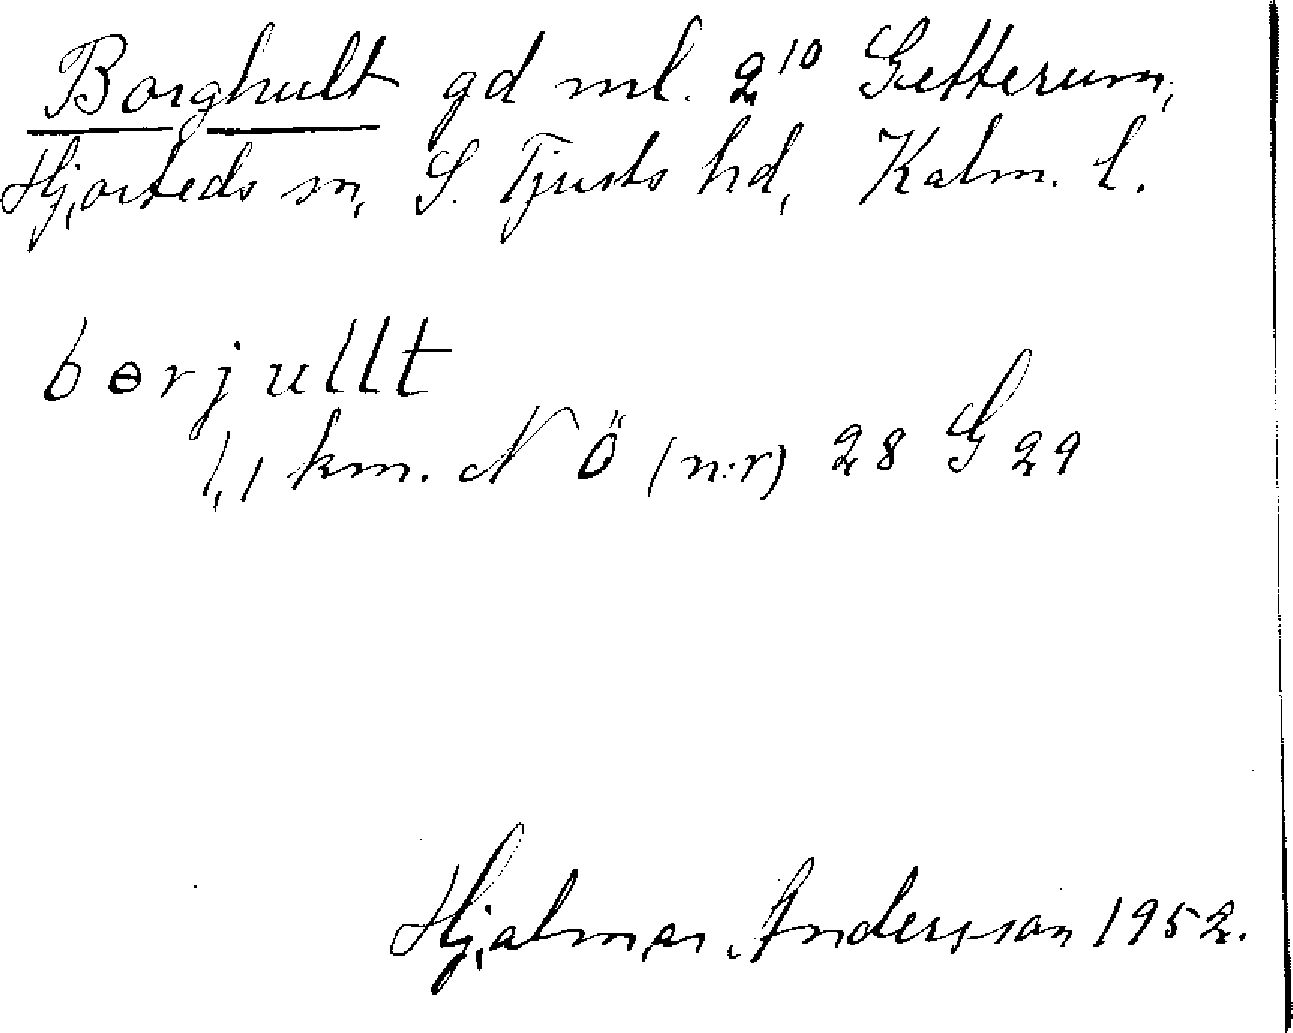 Borghult gd ml. 2¹⁰ Getterum,
Hjorteds sn, S. Tjusts hd, Kalm. l.
bɵrjullt
1,1 km. N Ö (n:r) 28 G 29
Hjalmar Andersson 1952.